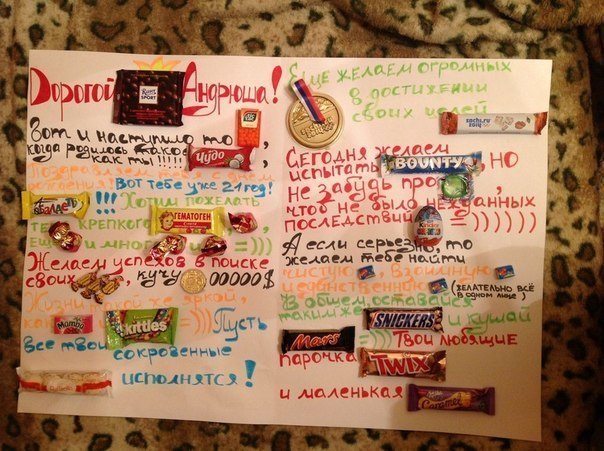 Дорогой RITTER SPORT Андрюша!
Вот и наступило то tic tac,
когда родилось такое Чудо,
как ты!!!!!
Поздравляем тебя с днём
рождения! Вот тебе уже 21 год!
!!! Хотим пожелать
тебе крепкого ГЕМАТОГЕН,
ещё и много =)))
Желаем успехов в поиске
своих, кучу 00000$
Жизни такой же яркой,
как Mamba skittles =)))) Пусть
все твои сокровенные
Raffaello исполнятся!
Ещё желаем огромных
в достижении
своих целей sochi.ru 2014
Сегодня желаем
испытать BOUNTY, но
не забудь про
чтоб не было нежданных
последствий Kinder =))))))
А если серьезно, то
желаем тебе найти
чистую, взаимную
и единственную (желательно всё
в одном лице)
В общем, оставайся
таким же SNICKERS и кушай
Mars =)))) Твои любящие
парочка TWIX
и маленькая Caramel